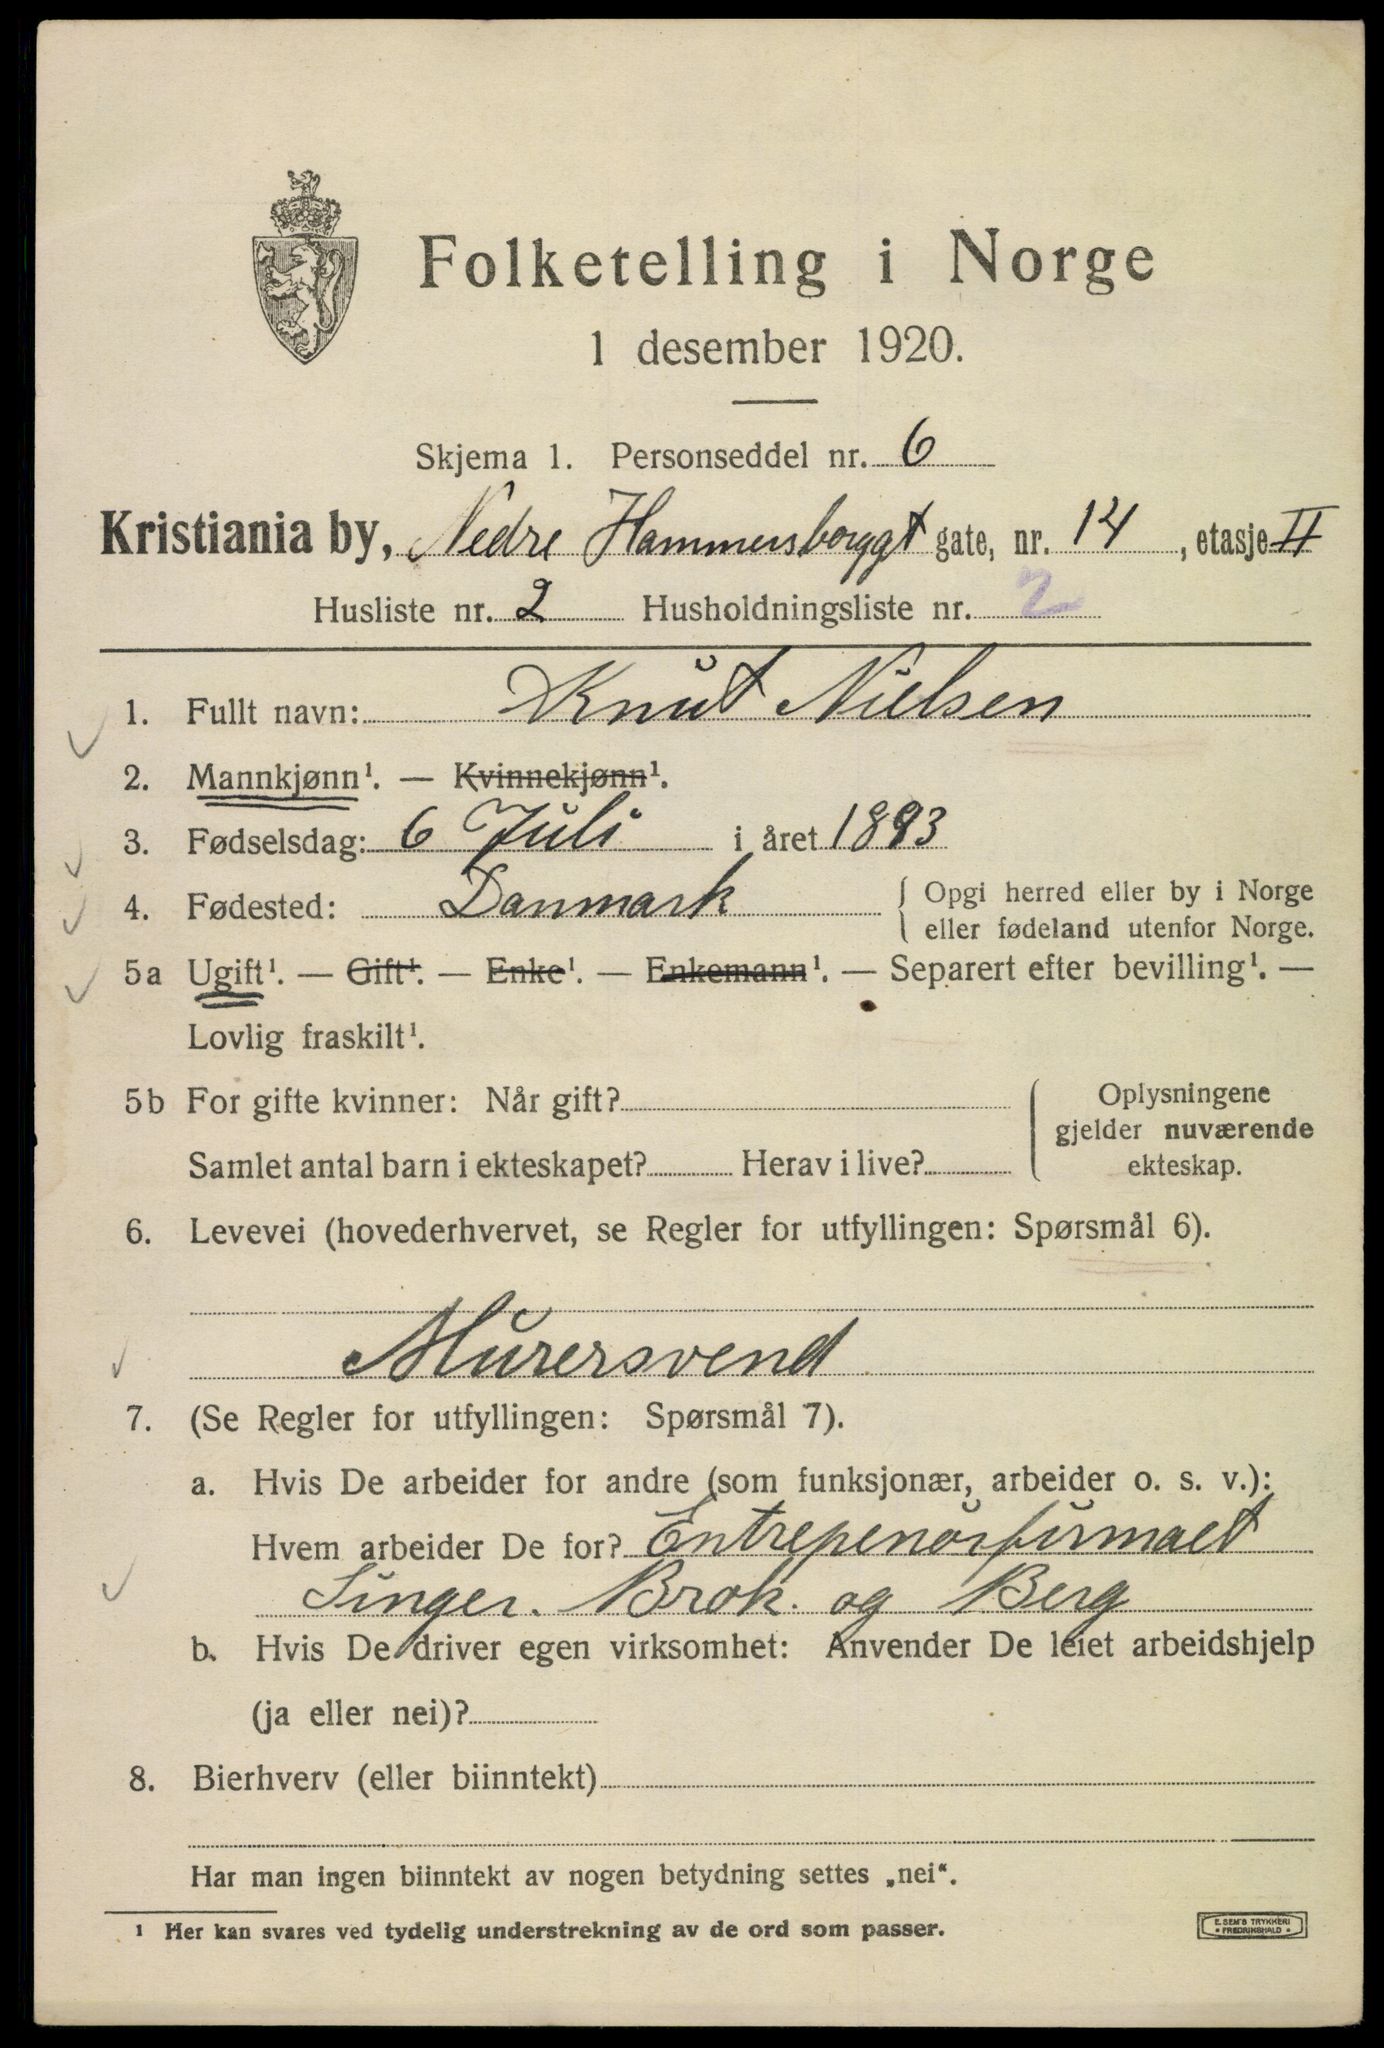 Folketelling i Norge
1 desember 1920.
Skjema 1. Personseddel nr. 6
Kristiania by, Nedre Hammersborggt gate, nr. 14, etasje II
Husliste nr. 2 Husholdningsliste nr. 2
1. Fullt navn: Knut Nielsen
2. Mannkjønn¹. — Kvinnekjønn¹.
3. Fødselsdag: 6 Juli i året 1893
4. Fødested: Danmark { Opgi herred eller by i Norge
eller fødeland utenfor Norge.
5a Ugift¹. — Gift¹. — Enke¹. — Enkemann¹. — Separert efter bevilling¹. —
Lovlig fraskilt¹.
5b For gifte kvinner: Når gift? Oplysningene
gjelder nuværende
Samlet antal barn i ekteskapet? Herav i live? ekteskap.
6. Levevei (hovederhvervet, se Regler for utfyllingen: Spørsmål 6).
Murersvend
7. (Se Regler for utfyllingen: Spørsmål 7).
a. Hvis De arbeider for andre (som funksjonær, arbeider o. s. v.):
Hvem arbeider De for? Entrepenørfirmaet
Singer. Brok. og Berg
b. Hvis De driver egen virksomhet: Anvender De leiet arbeidshjelp
(ja eller nei)?
8. Bierhverv (eller biinntekt)
Har man ingen biinntekt av nogen betydning settes „nei“.
¹ Her kan svares ved tydelig understrekning av de ord som passer.
E. SEM'S TRYKKERI
• FREDRIKSHALD •